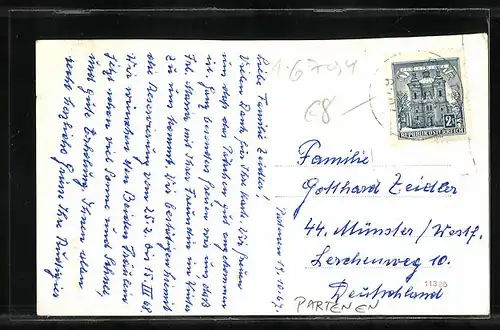 Liebe Familie Zeidler!
Vielen Dank für Ihre Karte. Wir freuen
uns daß gut angekommen
ist. Ganz besonders freuen wir uns daß
Frl. Maria mit Ihrer Freundin im Winter
zu uns kommt. Wir bestätigen hiermit
die Reservierung vom 25.2. bis 17. III 68
Wir wünschen den Beiden Fräulein
jetzt schon viel Sonne und Schnee,
und gute Erholung. Ihnen allen
recht herzliche Grüße Ihre
Partenen 19.10.67.
1.6794
68
S
2
REPUBLIK ÖSTERREICH
Familie
Gotthard Zeidler
44. Münster/Westf.
Lerchenweg 10.
11385
Deutschland
PARTENEN